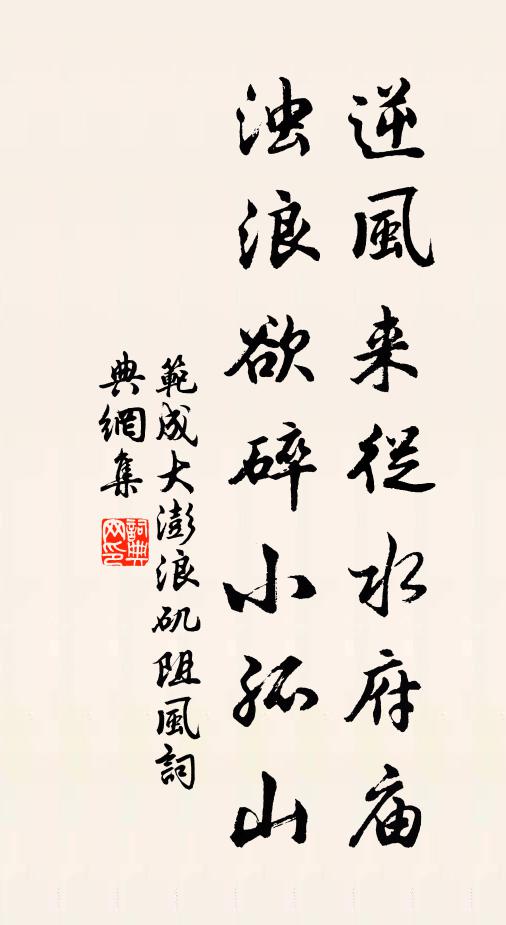 逆風来從水府庙
浊浪欲碎小孤山
範成大澎浪矶阻風詞
典網集
詞典网印